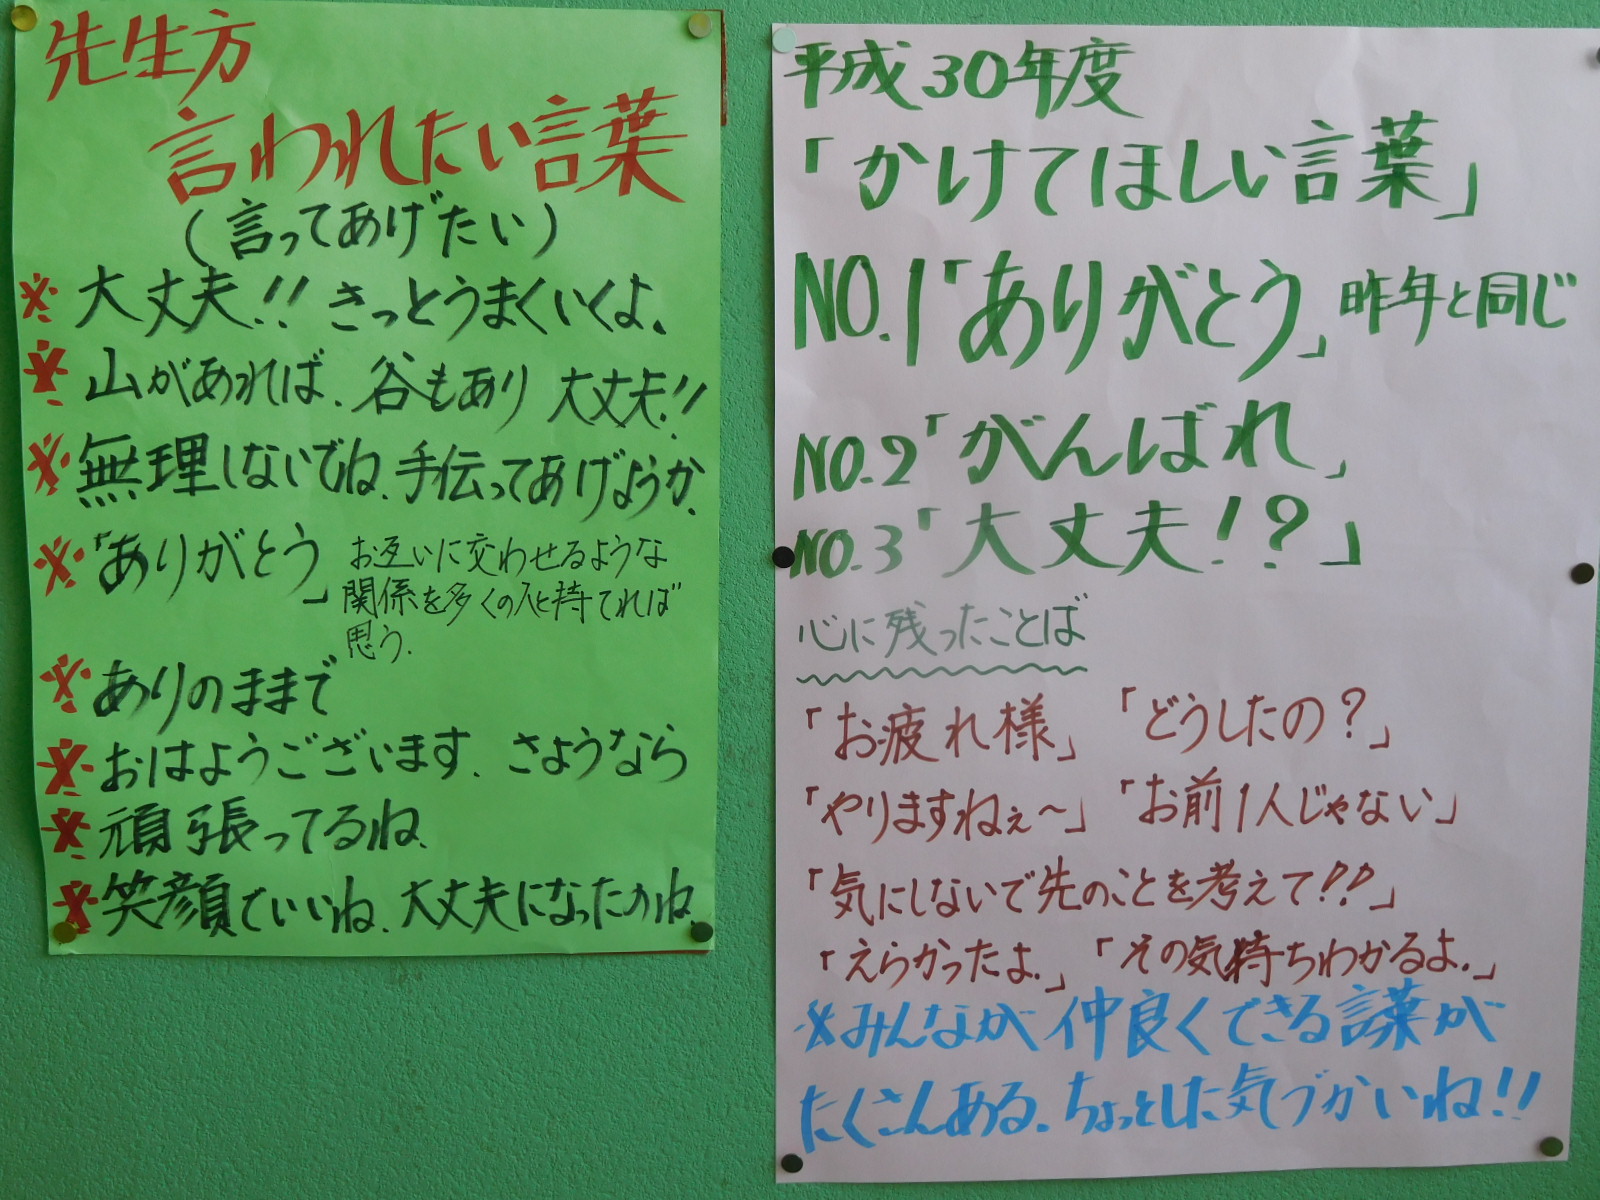 先生方
言われたい言葉
(言ってあげたい)
※大丈夫!! きっとうまくいくよ。
※山があれば、谷もあり 大丈夫!!
※無理しないでね、手伝ってあげようか。
※「ありがとう」お互いに交わせるような
関係を多くの人と持てれば
思う。
※ありのままで
※おはようございます、さようなら
※頑張ってるね、
※笑顔でいいね、大丈夫になったかね
平成30年度
「かけてほしい言葉」
NO.1「ありがとう」昨年と同じ
NO.2「がんばれ」
NO.3「大丈夫!?」
心に残ったことば
「お疲れ様」「どうしたの?」
「やりますねぇ〜」「お前1人じゃない」
「気にしないで先のことを考えて!!」
「えらかったよ。」「その気持ちわかるよ。」
※みんなが仲良くできる言葉が
たくさんある。ちょっとした気づかいね!!